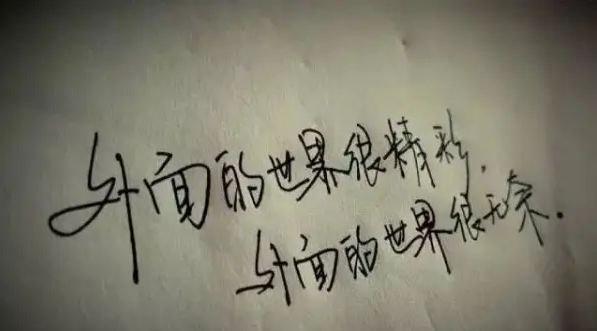 外面的世界很精彩.
外面的世界很无奈.